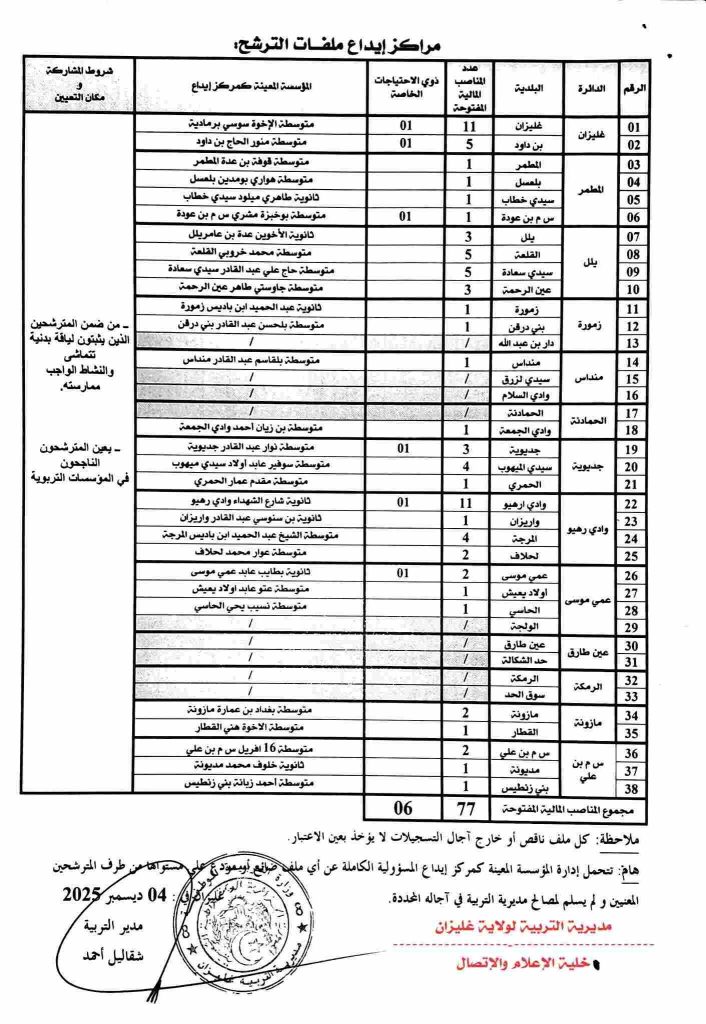 مراكز إيداع ملفات الترشح:
الرقم الدائرة البلدية عدد المناصب المالية المفتوحة ذوي الاحتياجات الخاصة المؤسسة المعينة كمركز إيداع شروط المشاركة و مكان التعيين
01 غليزان غليزان 11 01 متوسطة الإخوة سوسي برمادية
02 بن داود 5 01 متوسطة منور الحاج بن داود
03 المطمر المطمر 1 متوسطة قوفة بن عدة المطمر
04 بلعسل 1 متوسطة هواري بومدين بلعسل
05 سيدي خطاب 1 ثانوية طاهري ميلود سيدي خطاب
06 س م بن عودة 1 01 متوسطة بوخبزة مشري س م بن عودة
07 يلل يلل 3 ثانوية الأخوين عدة بن عامر يلل
08 القلعة 5 متوسطة محمد خروبي القلعة
09 سيدي سعادة 5 متوسطة حاج علي عبد القادر سيدي سعادة
10 عين الرحمة 3 متوسطة جاوستي طاهر عين الرحمة
11 زمورة زمورة 1 ثانوية عبد الحميد ابن باديس زمورة
12 بني درقن 1 متوسطة بلحسن عبد القادر بني درقن
13 دار بن عبد الله / /
14 منداس منداس 1 متوسطة بلقاسم عبد القادر منداس
15 سيدي لزرق / /
16 وادي السلام / /
17 الحمادنة الحمادنة / /
18 وادي الجمعة 1 متوسطة بن زيان أحمد وادي الجمعة
19 جديوية جديوية 3 01 متوسطة نوار عبد القادر جديوية
20 سيدي الميهوب 4 متوسطة سوفير عابد اولاد سيدي ميهوب
21 الحمري 1 متوسطة مقدم عمار الحمري
22 وادي رهيو وادي ارهيو 11 01 ثانوية شارع الشهداء وادي رهيو
23 واريزان 1 ثانوية بن سنوسي عبد القادر واريزان
24 المرجة 4 متوسطة الشيخ عبد الحميد ابن باديس المرجة
25 لحلاف 2 متوسطة عوار محمد لحلاف
26 عمي موسى عمي موسى 2 01 ثانوية بطايب عابد عمي موسى
27 اولاد يعيش 1 متوسطة عتو عابد اولاد يعيش
28 الحاسي 1 متوسطة نسيب يحي الحاسي
29 الولجة / /
30 عين طارق عين طارق / /
31 حد الشكالة / /
32 الرمكة الرمكة / /
33 سوق الحد / /
34 مازونة مازونة 2 متوسطة بغداد بن عمارة مازونة
35 القطار 1 متوسطة الاخوة هني القطار
36 س م بن علي س م بن علي 2 متوسطة 16 افريل س م بن علي
37 مديونة 1 ثانوية خلوف محمد مديونة
38 بني زنطيس 1 متوسطة أحمد زبانة بني زنطيس
مجموع المناصب المالية المفتوحة 77 06
ـ من ضمن المترشحين
الذين يثبتون لياقة بدنية
تتماشى
والنشاط الواجب
ممارسته.
ـ يعين المترشحون
الناجحون
في المؤسسات التربوية
ملاحظة: كل ملف ناقص أو خارج آجال التسجيلات لا يؤخذ بعين الاعتبار.
هام: تتحمل إدارة المؤسسة المعينة كمركز إيداع المسؤولية الكاملة عن أي ملف ضائع أو مودع على مستواها من طرف المترشحين
المعنيين و لم يسلم لمصالح مديرية التربية في آجاله المحددة.
غليزان في: 04 ديسمبر 2025
مدير التربية
شقاليل أحمد
مديرية التربية لولاية غليزان
خلية الإعلام والإتصال